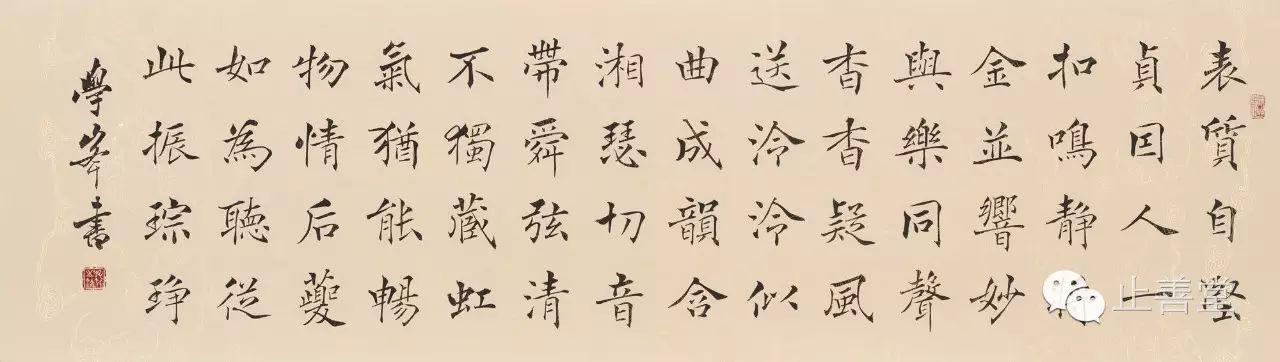 表質自堅
貞因人一
扣鳴静
金並響妙
與樂同聲
杳杳疑風
送泠泠似
曲成韻含
湘瑟切音
帶舜弦清
不獨藏虹
氣猶能暢
物情后夔
如為聽從
此振琮琤
學峯書
止善堂